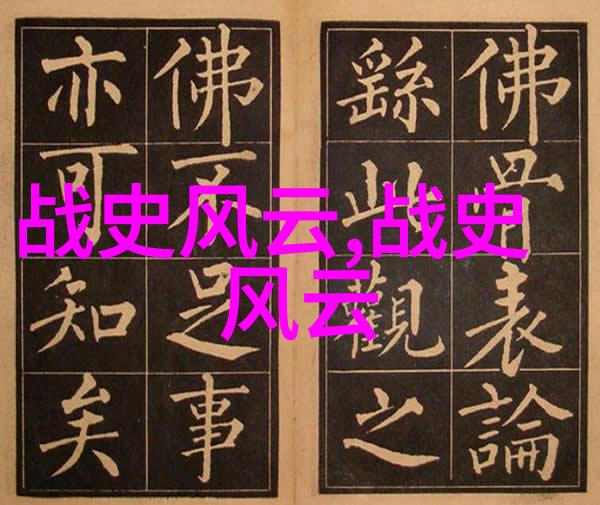 战史风云,战史
风云
佛骨表論
繇此觀之
佛不足事
亦可知矣